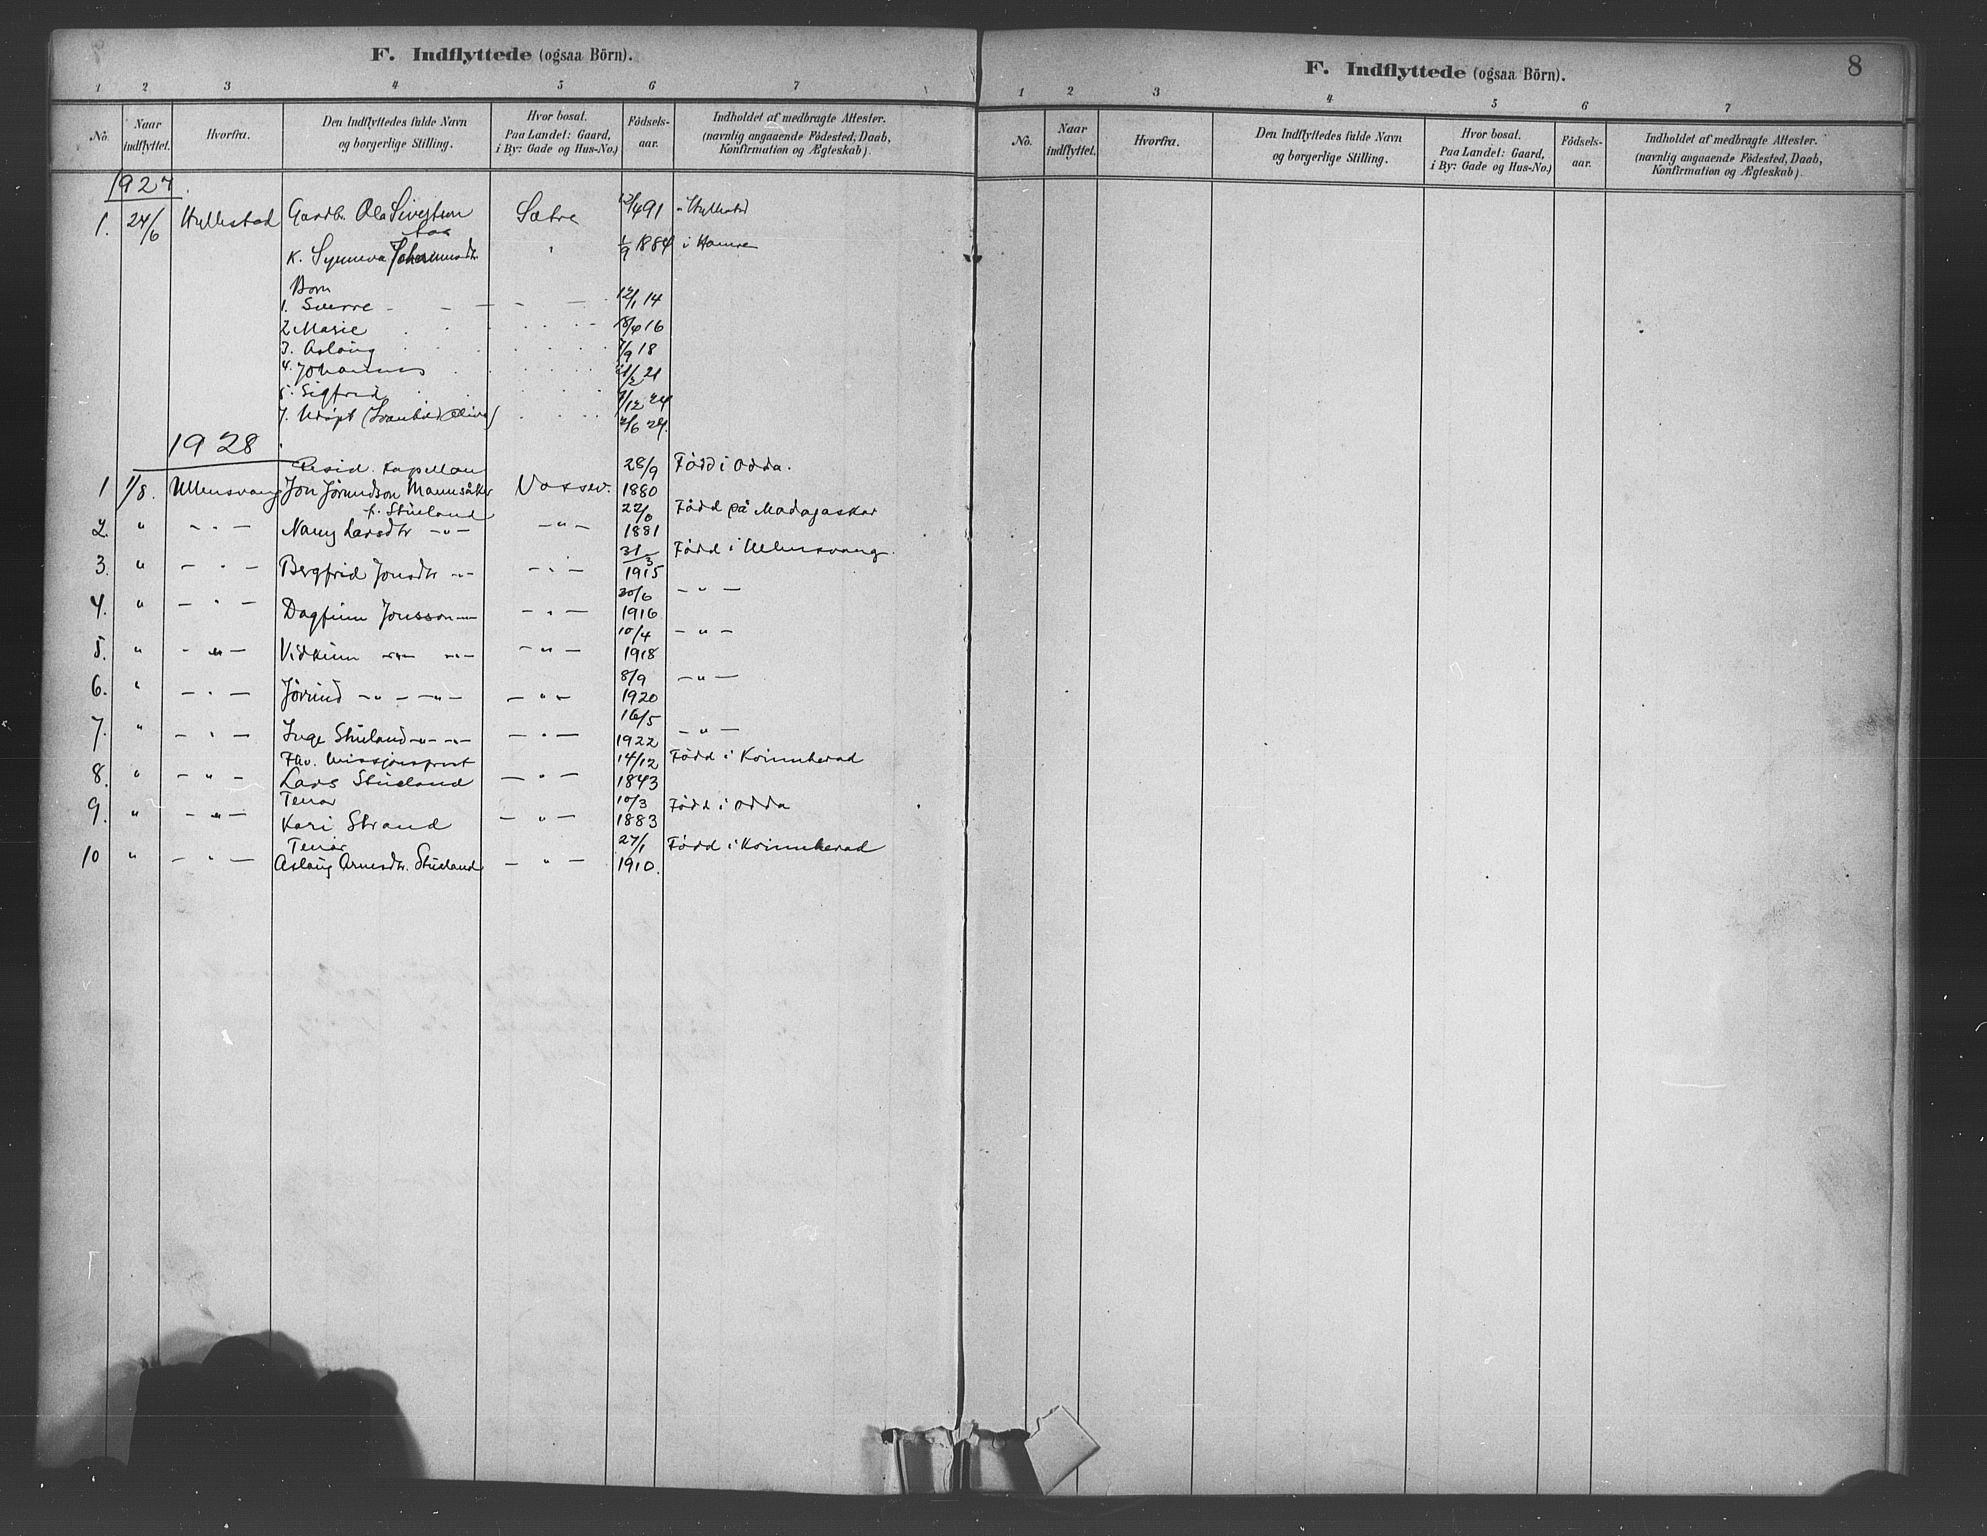 F. Indflyttede (ogsaa Börn).
1 2 3 4 5 6 7
No. Naar indflyttet. Hvorfra. Den Indflyttedes fulde Navn og borgerlige Stilling. Hvor bosat. Paa Landet: Gaard, i By: Gade og Hus-No.) Födsels-aar. Indholdet af medbragte Attester. (navnlig angaaende Födested, Daab, Konfirmation og Ægteskab).
1927.
1. 24/6 Hyllestad Gaardbr. Ola Sivertsen Sætre 12/4 91 i Hyllestad
K. Synneva Johannesdtr " 1/9 1884 i Hamre
Born
1. Sverre - - - - - 12/1 14
2 Marie 18/4 16
3. Aslaug 7/9 18
4. Johannes 21/2 21
5. Sigfrid 1/12 24
7. Udöpt 2/6 27.
1928
Resid. Kapellan 28/9 Född i Odda.
1 1/8. Ullensvang Jon Jörundson Mannsåker Vossev. 1880
f. Stueland 22/ Född på Madagaskar
2. " - " - Nany Larsdtr - " - - " - 1881
31/3 Född i Ullensvang.
3. " - " - Bergfrid Jonsdtr - " - - " - 1915
20/6 - " -
4. " - " - Dagfinn Jonsson - " - - " - 1916
10/4 - " -
5. " - " - Vidkunn - " - - " - - " - 1918
8/9 - " -
6. " - " - Jörund - " - - " - - " - 1920
16/5
7. " - " - Inge Stueland - " - - " - - " - 1922 - " -
Fhv. misjonsprest 14/12 Född i Kvinnherad
8. " - " - Lars Stueland - " - 1843
Tenar 10/3 Född i Odda
9. " - " - Kari Strand - " - 1883
Tenar 27/1 Född i Kvinnherad
10 " - " - Aslaug Arnesdtr. Stueland - " - 1910.
F. Indflyttede (ogsaa Börn). 8
1 2 3 4 5 6 7
No. Naar indflyttet. Hvorfra. Den Indflyttedes fulde Navn og borgerlige Stilling. Hvor bosat. Paa Landet: Gaard, i By: Gade og Hus-No.) Födsels-aar. Indholdet af medbragte Attester. (navnlig angaaende Födested, Daab, Konfirmation og Ægteskab).